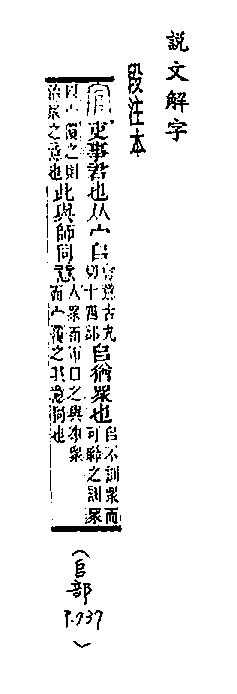 說文解字
段注本
官 吏事君也从宀𠂤 古丸切十四部 𠂤猶眾也 𠂤不訓眾而可聯之訓眾
以宀覆之則治眾之意也 此與師同意 人眾而帀口之與事眾而宀覆之其意同也
(𠂤部 P.737)